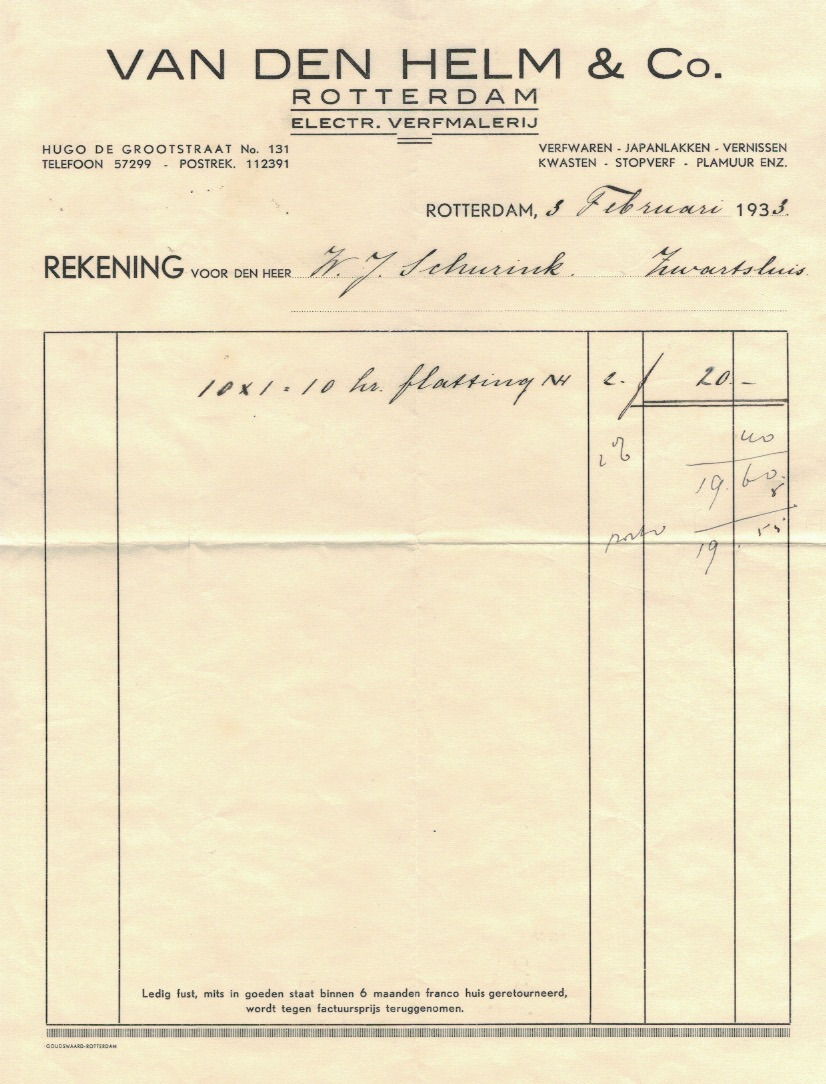 VAN DEN HELM & Co.
ROTTERDAM
ELECTR. VERFMALERIJ
HUGO DE GROOTSTRAAT No. 131
TELEFOON 57299 - POSTREK. 112391
VERFWAREN - JAPANLAKKEN - VERNISSEN
KWASTEN - STOPVERF - PLAMUUR ENZ.
ROTTERDAM, 3 Februari 1933.
REKENING VOOR DEN HEER W. J. Schurink. Zwartsluis.
10 x 1 = 10 kr. flatting NH 2.- / 20.-
2% 40
19.60
porto 5
19.55
Ledig fust, mits in goeden staat binnen 6 maanden franco huis geretourneerd,
wordt tegen factuursprijs teruggenomen.
GOUDSWAARD-ROTTERDAM